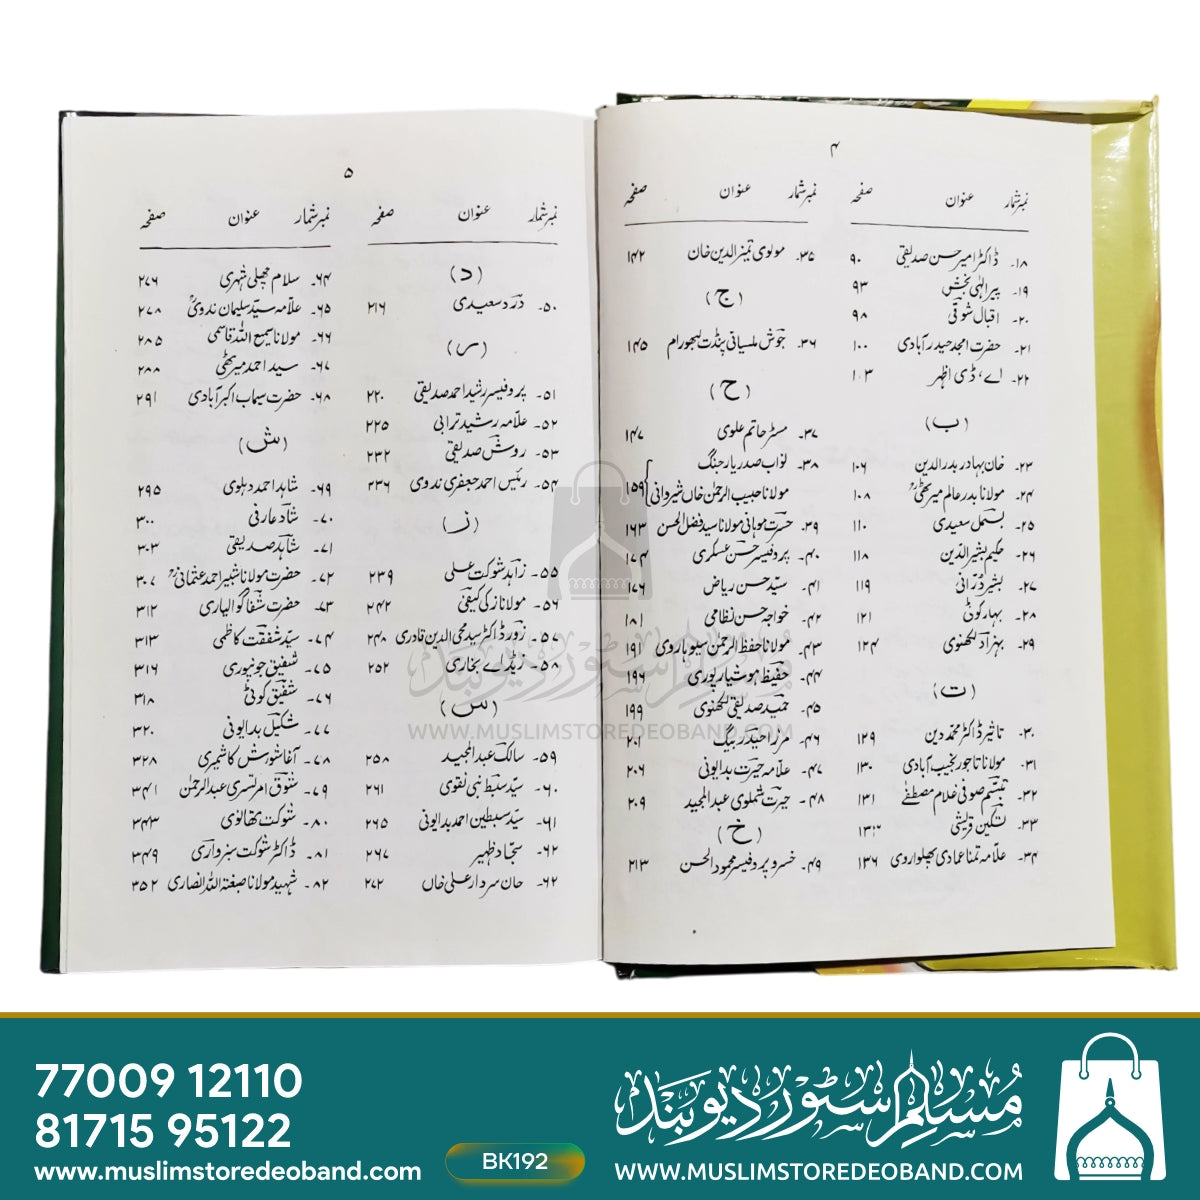 ۴
نمبر شمار عنوان صفحہ
۱۸۔ ڈاکٹر امیر حسن صدیقی ۹۰
۱۹۔ پیر الٰہی بخش ۹۳
۲۰۔ اقبال شوقی ۹۸
۲۱۔ حضرت امجد حیدرآبادی ۱۰۰
۲۲۔ اے، ڈی اظہر ۱۰۳
(ب)
۲۳۔ خان بہادر بدرالدین ۱۰۶
۲۴۔ مولانا بدر عالم میرٹھیؒ ۱۰۸
۲۵۔ بسمل سعیدی ۱۱۰
۲۶۔ حکیم بشیر الدین ۱۱۸
۲۷۔ بشیر درانی ۱۱۹
۲۸۔ بہار کوٹی ۱۲۱
۲۹۔ بہزاد لکھنوی ۱۲۴
(ت)
۳۰۔ تاثیر ڈاکٹر محمد دین ۱۲۹
۳۱۔ مولانا تاجور نجیب آبادی ۱۳۰
۳۲۔ تبسم صوفی غلام مصطفٰے ۱۳۱
۳۳۔ تسکین قریشی ۱۳۳
۳۴۔ علامہ تمنا عمادی پھلواروی ۱۳۶
نمبر شمار عنوان صفحہ
۳۵۔ مولوی تمیز الدین خان ۱۴۲
(ج)
۳۶۔ جوش ملسیانی پنڈت لبھورام ۱۴۵
(ح)
۳۷۔ مسٹر حاتم علوی ۱۴۷
۳۸۔ نواب صدر یار جنگ
مولانا حبیب الرحمٰن خاں شیروانی ۱۵۹
۳۹۔ حسرت موہانی مولانا سید فضل الحسن ۱۶۳
۴۰۔ پروفیسر حسن عسکری ۱۷۴
۴۱۔ سید حسن ریاض ۱۷۶
۴۲۔ خواجہ حسن نظامی ۱۸۱
۴۳۔ مولانا حفظ الرحمٰن سیوہاروی ۱۹۱
۴۴۔ حفیظ ہوشیارپوری ۱۹۶
۴۵۔ حمید صدیقی لکھنوی ۱۹۹
۴۶۔ مرزا حیدر بیگ ۲۰۱
۴۷۔ علامہ حیرت بدایونی ۲۰۶
۴۸۔ حیرت شملوی عبدالمجید ۲۰۹
(خ)
۴۹۔ خسرو پروفیسر محمود الحسن ۲۱۳
۵
نمبر شمار عنوان صفحہ
(د)
۵۰۔ درد سعیدی ۲۱۶
(ر)
۵۱۔ پروفیسر رشید احمد صدیقی ۲۲۰
۵۲۔ علامہ رشید ترابی ۲۲۵
۵۳۔ روش صدیقی ۲۳۲
۵۴۔ رئیس احمد جعفری ندوی ۲۳۶
(ز)
۵۵۔ زاہد شوکت علی ۲۳۹
۵۶۔ مولانا زکی کیفی ۲۴۲
۵۷۔ زور ڈاکٹر سید محی الدین قادری ۲۴۸
۵۸۔ زیڈ اے بخاری ۲۵۲
(س)
۵۹۔ سالک عبدالمجید ۲۵۸
۶۰۔ سید سبط نبی نقوی ۲۶۱
۶۱۔ سید سبطین احمد بدایونی ۲۶۵
۶۲۔ سجاد ظہیر ۲۶۷
۶۲۔ حان سردار علی خاں ۲۷۲
نمبر شمار عنوان صفحہ
۶۴۔ سلام مچھلی شہری ۲۷۶
۶۵۔ علامہ سید سلیمان ندویؒ ۲۷۸
۶۶۔ مولانا سمیع اللہ قاسمی ۲۸۵
۶۷۔ سید احمد میرٹھی ۲۸۸
۶۸۔ حضرت سیماب اکبرآبادی ۲۹۱
(ش)
۶۹۔ شاہد احمد دہلوی ۲۹۵
۷۰۔ شاد عارفی ۳۰۰
۷۱۔ شاہد صدیقی ۳۰۳
۷۲۔ حضرت مولانا شبیر احمد عثمانیؒ ۳۰۷
۷۳۔ حضرت شفا گوالیاری ۳۱۲
۷۴۔ سید شفقت کاظمی ۳۱۳
۷۵۔ شفیق جونپوری ۳۱۶
۷۶۔ شفیق کوٹی ۳۱۸
۷۷۔ شکیل بدایونی ۳۲۰
۷۸۔ آغا شورش کاشمیری ۳۲۸
۷۹۔ شوق امرتسری عبدالرحمٰن ۳۴۱
۸۰۔ شوکت تھانوی ۳۴۳
۸۱۔ ڈاکٹر شوکت سبزواری ۳۴۹
۸۲۔ شہید مولانا صبغۃ اللہ انصاری ۳۵۲
مسلم سٹور دیوبند
WWW.MUSLIMSTOREDEOBAND.COM
77009 12110
81715 95122
www.muslimstoredeoband.com
BK192
مسلم سٹور دیوبند
WWW.MUSLIMSTOREDEOBAND.COM